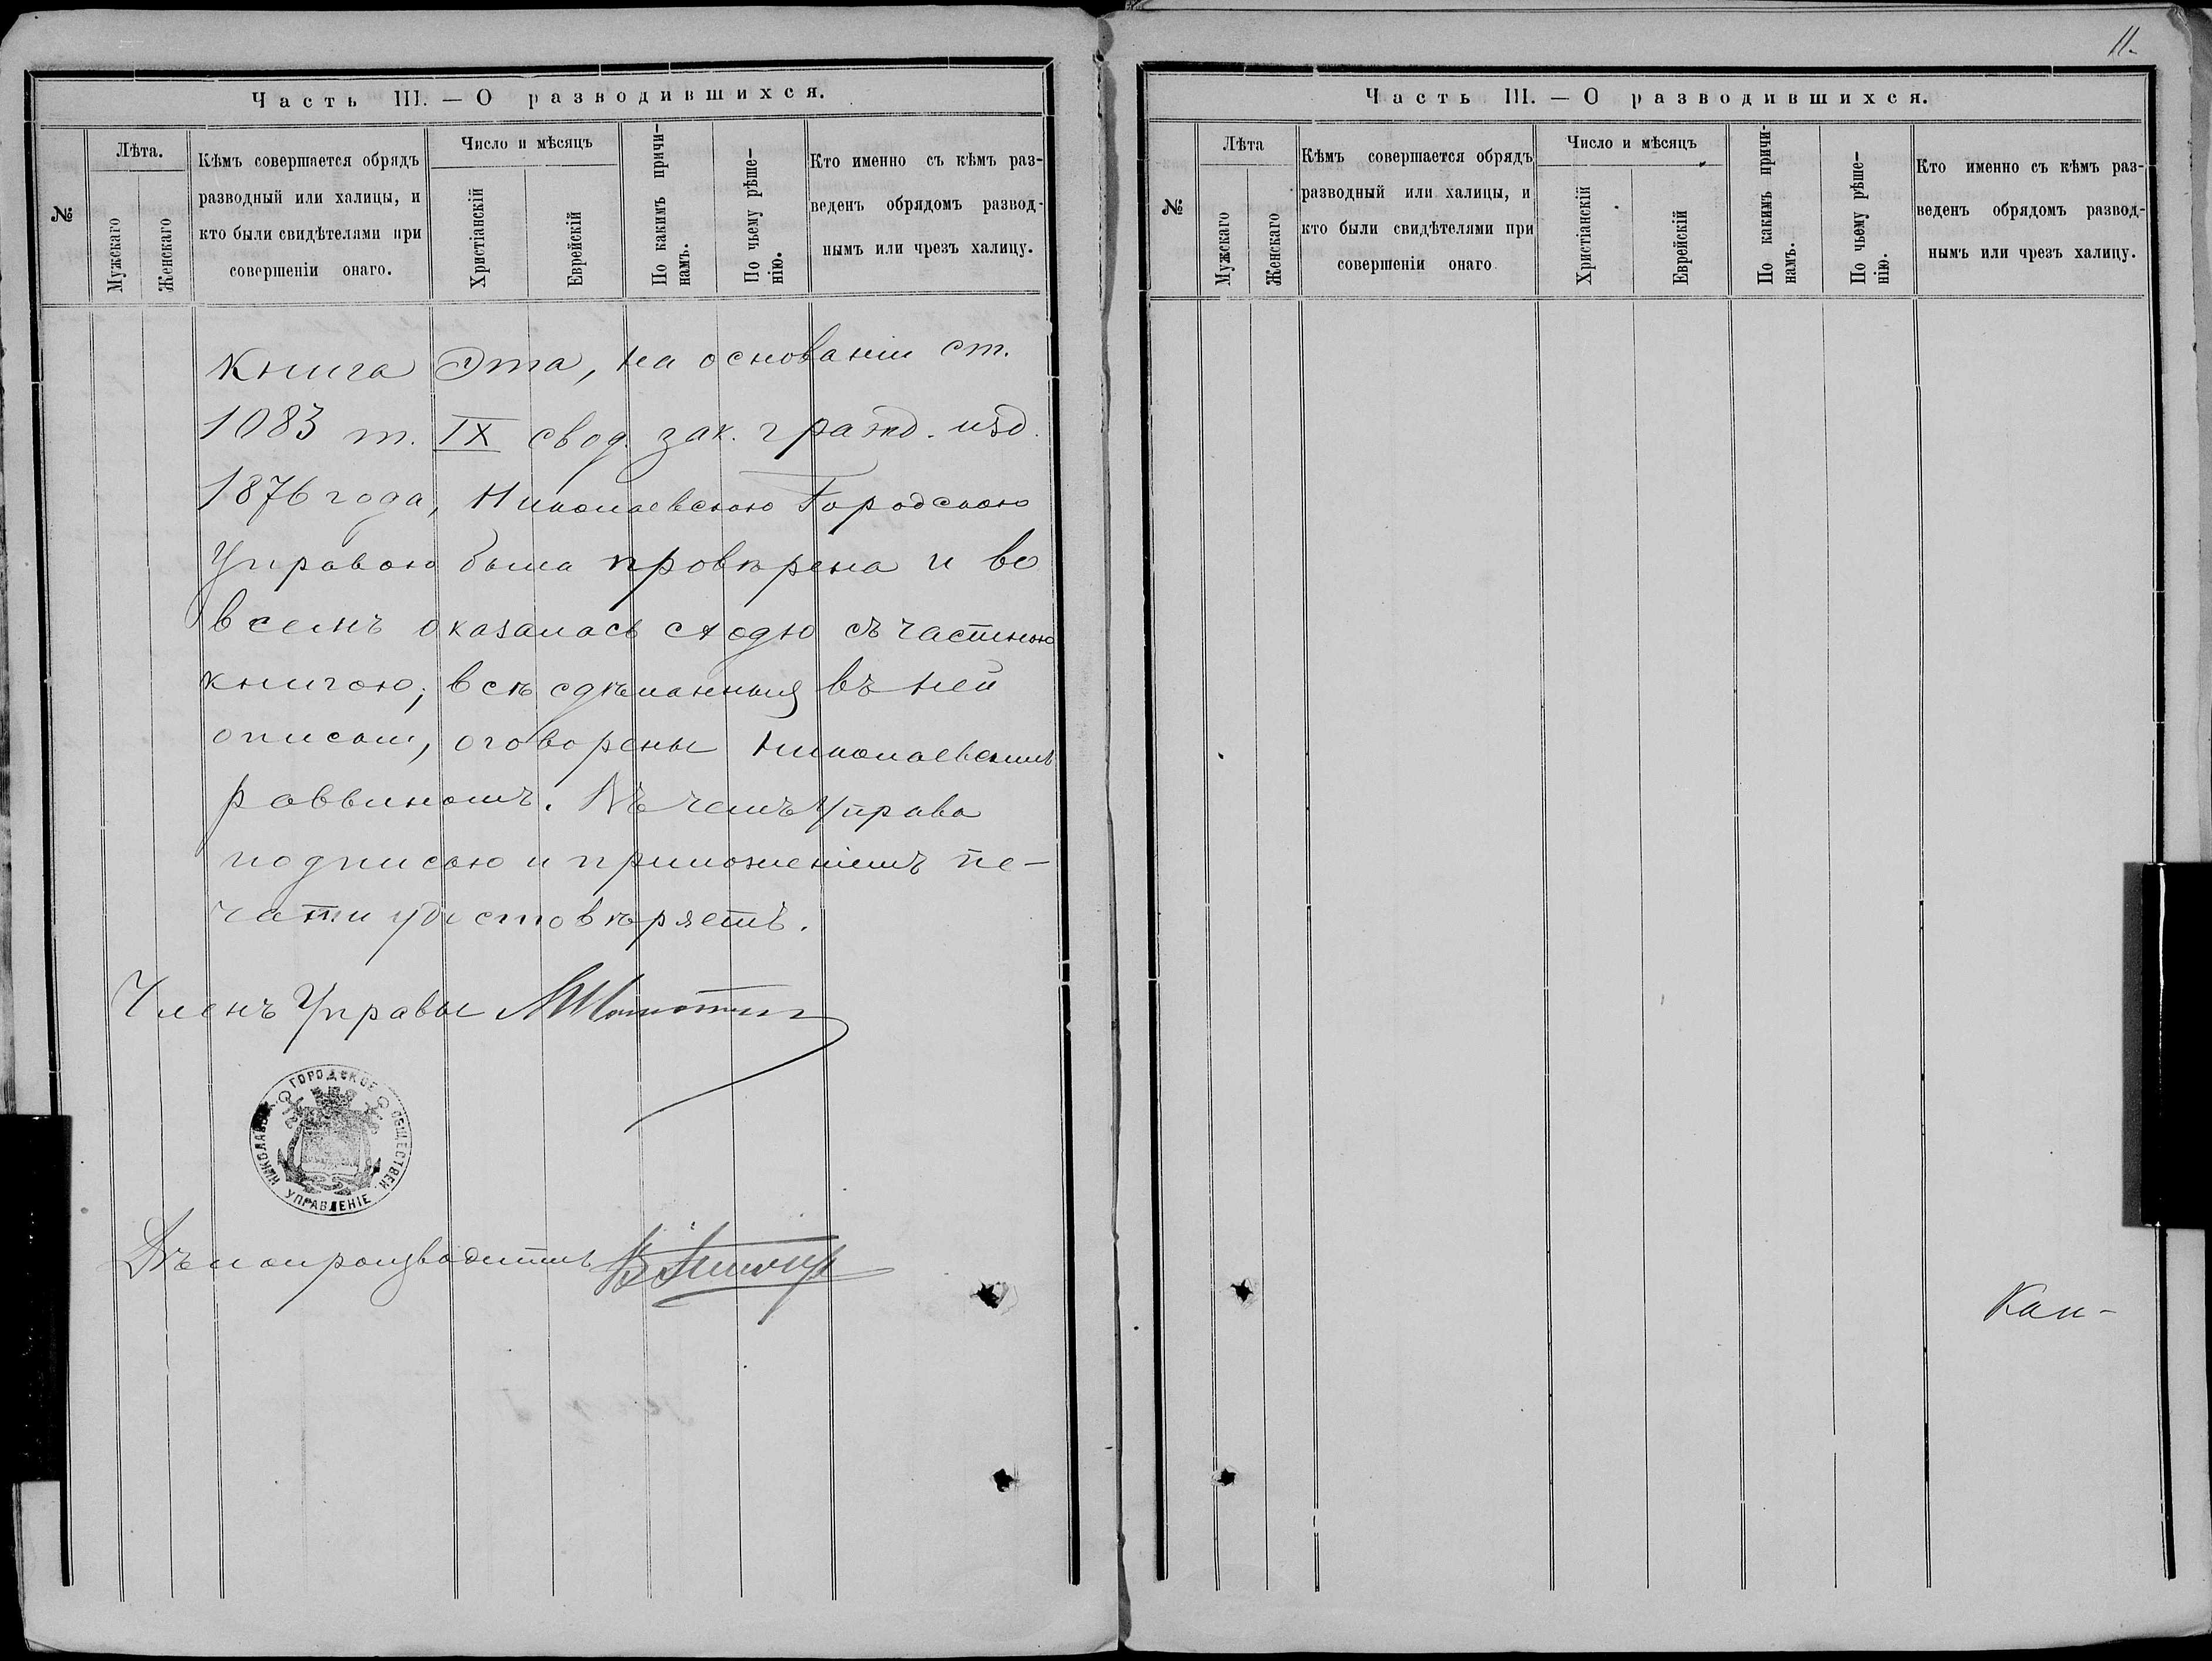 11.
Часть III. — О разводившихся.
№
Лѣта.
Мужскаго
Женскаго
Кѣмъ совершается обрядъ
разводный или халицы, и
кто были свидѣтелями при
совершеніи онаго.
Число и мѣсяцъ
Христіанскій
Еврейскій
По какимъ причи-
намъ.
По чьему рѣше-
нію.
Кто именно съ кѣмъ раз-
веденъ обрядомъ развод-
нымъ или чрезъ халицу.
Книга Эта, на основаніи ст.
1083 т. IX свод. зак. гражд. изд.
1876 года, Николаевскою Городскою
Управою была провѣрена и во
всемъ оказалась съ частною
книгою, всѣ сдѣланныя въ ней
описки, оговорены Николаевскимъ
раввиномъ. Въ чемъ Управа
подписью и приложеніемъ пе-
чати удостовѣряетъ.
Членъ Управы
НИКОЛАЕВСК. ГОРОДСКОЕ ОБЩЕСТВЕН. УПРАВЛЕНІЕ
Дѣлопроизводитель
Часть III. — О разводившихся.
№
Лѣта
Мужскаго
Женскаго
Кѣмъ совершается обрядъ
разводный или халицы, и
кто были свидѣтелями при
совершеніи онаго
Число и мѣсяцъ
Христіанскій
Еврейскій
По какимъ причи-
намъ.
По чьему рѣше-
нію.
Кто именно съ кѣмъ раз-
веденъ обрядомъ развод-
нымъ или чрезъ халицу.
Кан-